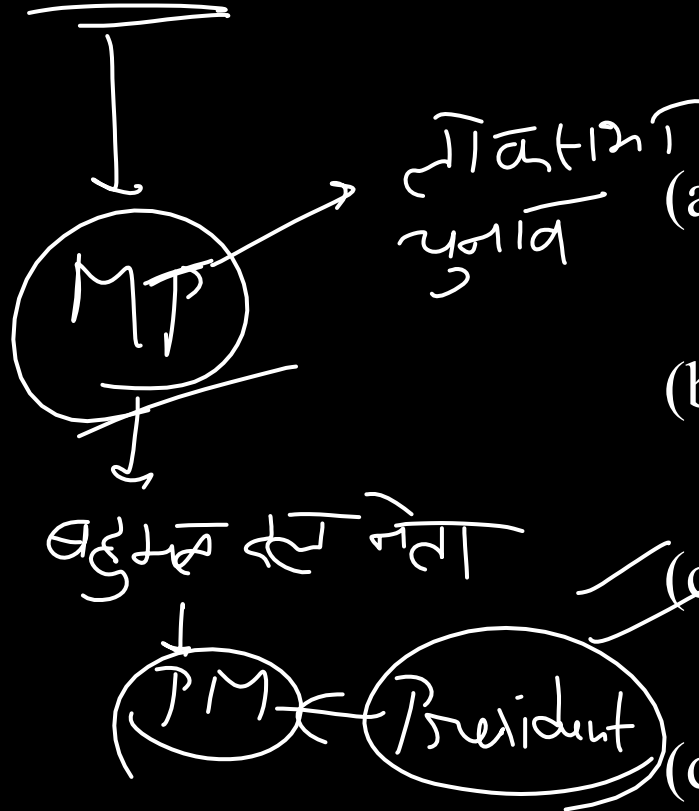 लोकसभा
चुनाव
(a
MP
(b
बहुमत दल नेता
(c
PM President
(d